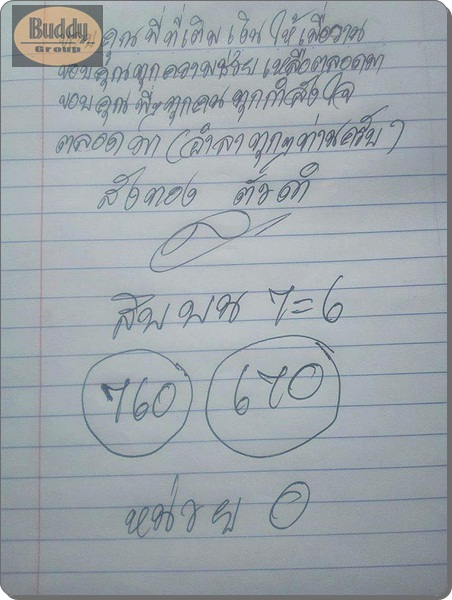 Buddy
Group
ขอบคุณพี่ที่เติมเงินให้เมื่อวาน
ขอบคุณทุกความช่วยเหลือตลอดมา
ขอบคุณพี่ๆทุกคน ทุกกำลังใจ
ตลอดมา (อำลาทุกๆท่านครับ)
สังทอง ตัวดำ
สิบบน 7=6
760 670
หน่วย 0